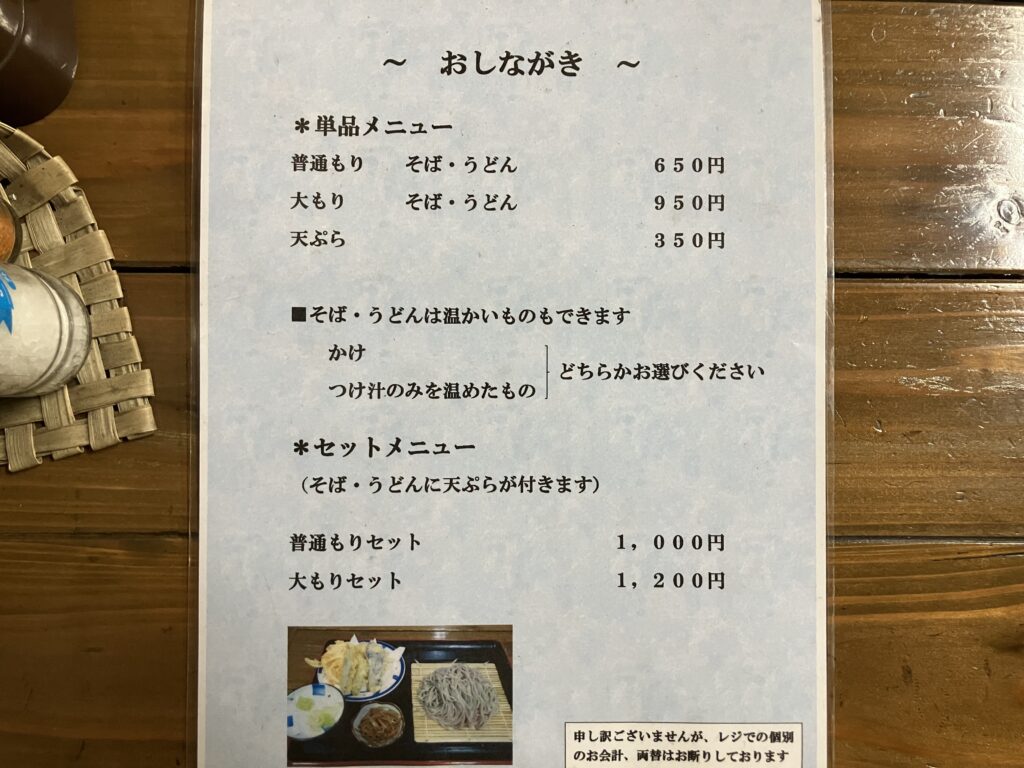 ～ おしながき ～
＊単品メニュー
普通もり そば・うどん ６５０円
大もり そば・うどん ９５０円
天ぷら ３５０円
■そば・うどんは温かいものもできます
かけ
つけ汁のみを温めたもの
どちらかお選びください
＊セットメニュー
（そば・うどんに天ぷらが付きます）
普通もりセット １，０００円
大もりセット １，２００円
申し訳ございませんが、レジでの個別
のお会計、両替はお断りしております